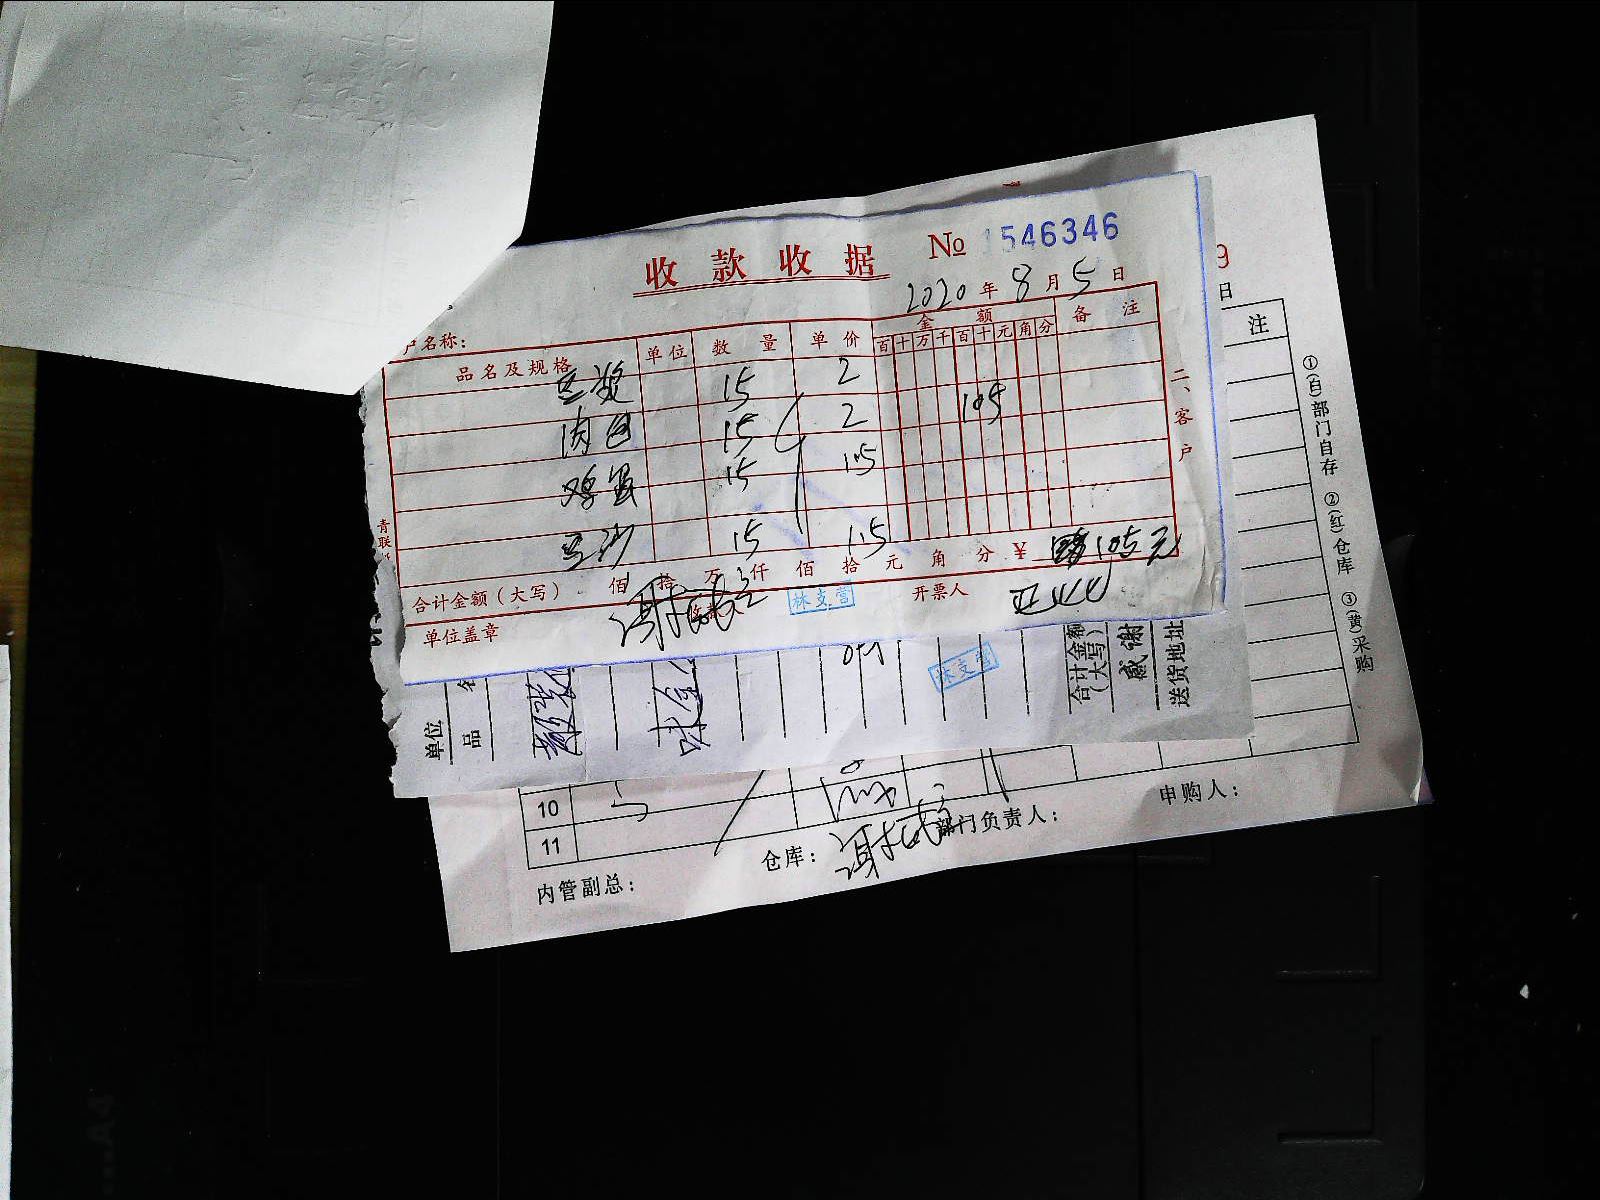 收款收据 № 1546346
2020年8月5日
户名称：
品名及规格 单位 数量 单价 金额 备注
百 十 万 千 百 十 元 角 分
豆浆 15 2
肉包 15 2 105
鸡蛋 15 1.5
豆沙 15 1.5
合计金额（大写） 佰 拾 万 仟 佰 拾 元 角 分 ￥ 105元
单位盖章 林支营 开票人
二、客户
青联
9
日
注
①(白)部门自存 ②(红)仓库 ③(黄)采购
单位
品名
林支营
合计金额
(大写)
感谢
送货地址
10
11
内管副总： 仓库： 部门负责人： 申购人：
A4